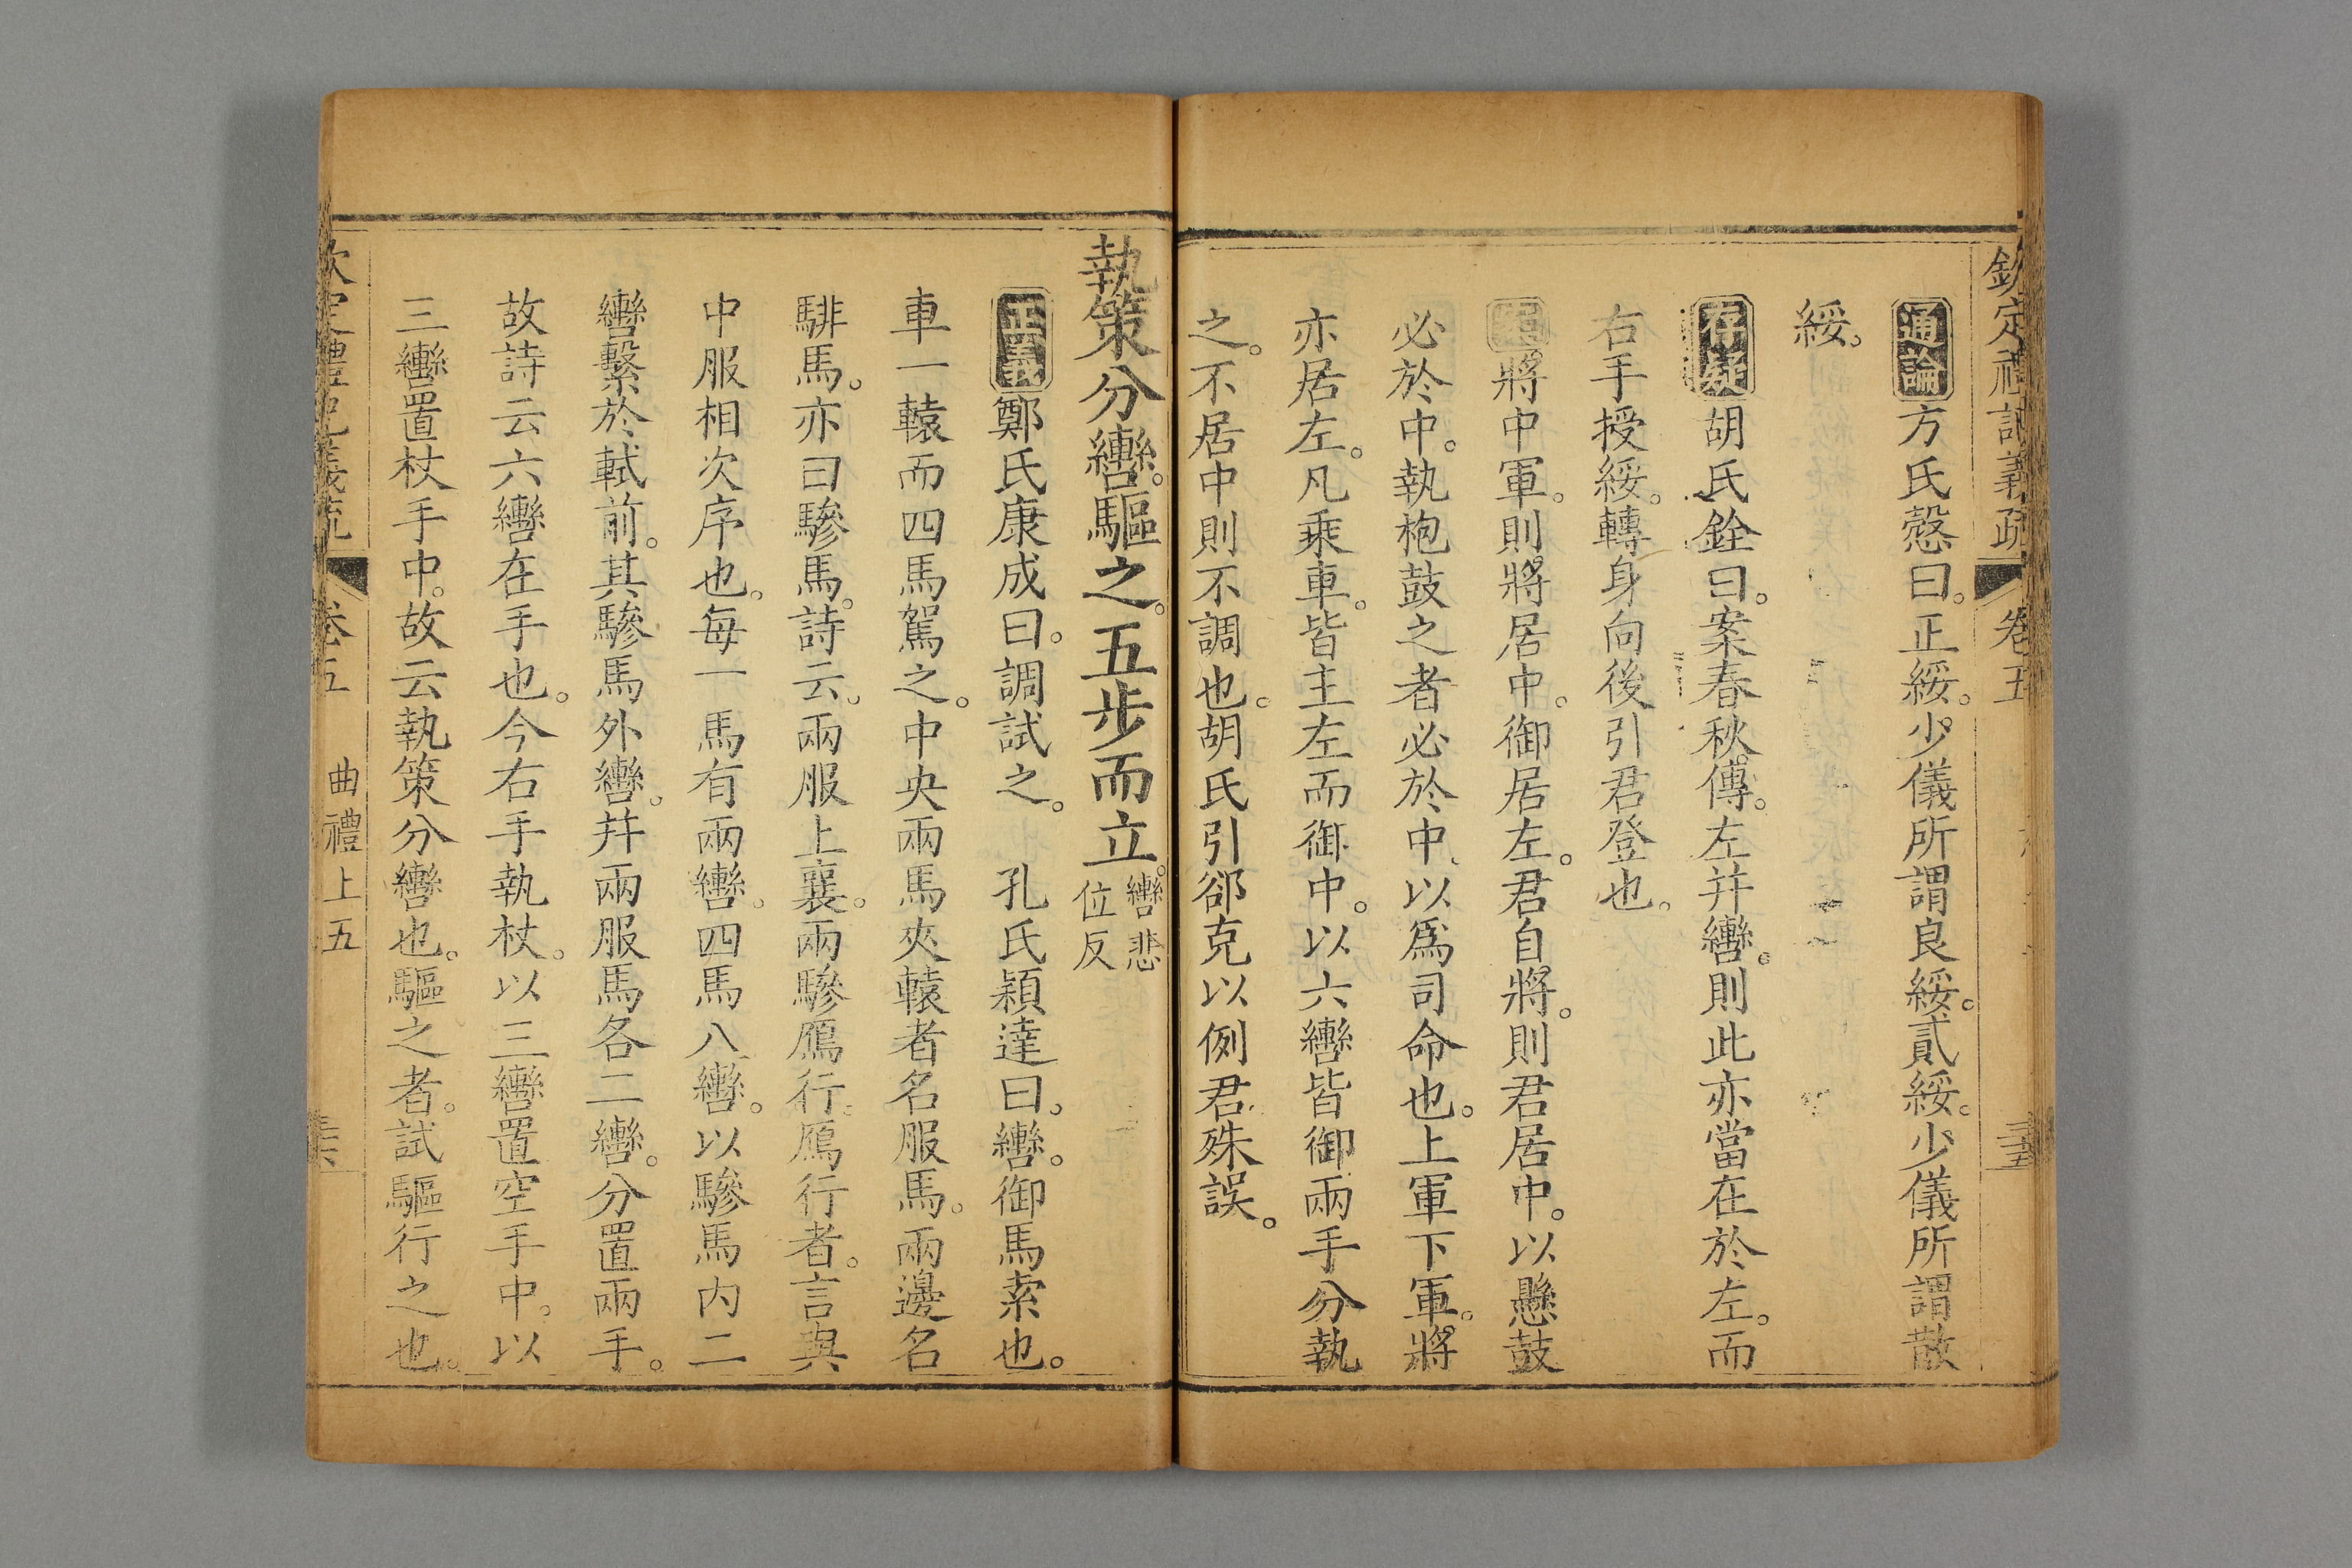 欽定禮記義疏 卷五
通論方氏慤曰。正綏。少儀所謂良綏。貳綏。少儀所謂散
綏。
存疑胡氏銓曰。案春秋傳。左并轡。則此亦當在於左。而
右手授綏。轉身向後引君登也。
將中軍。則將居中。御居左。君自將。則君居中。以懸鼓
必於中。執枹鼓之者必於中、以爲司命也。上軍下軍。將
亦居左。凡乘車。皆主左而御中。以六轡皆御兩手分執
之。不居中則不調也。胡氏引郤克以例君殊誤。
執策分轡。驅之。五步而立。轡悲
位反
正義鄭氏康成曰。調試之。 孔氏穎達曰。轡。御馬索也。
車一轅而四馬駕之。中央兩馬夾轅者名服馬。兩邊名
騑馬。亦曰驂馬。詩云。兩服上襄。兩驂鴈行。鴈行者。言與
中服相次序也。每一馬有兩轡。四馬八轡。以驂馬内二
轡繫於軾前。其驂馬外轡。并兩服馬各二轡。分置兩手。
故詩云六轡在手也。今右手執杖。以三轡置空手中。以
三轡置杖手中。故云執策分轡也。驅之者。試驅行之也。
欽定禮記義疏 卷五 曲禮上五